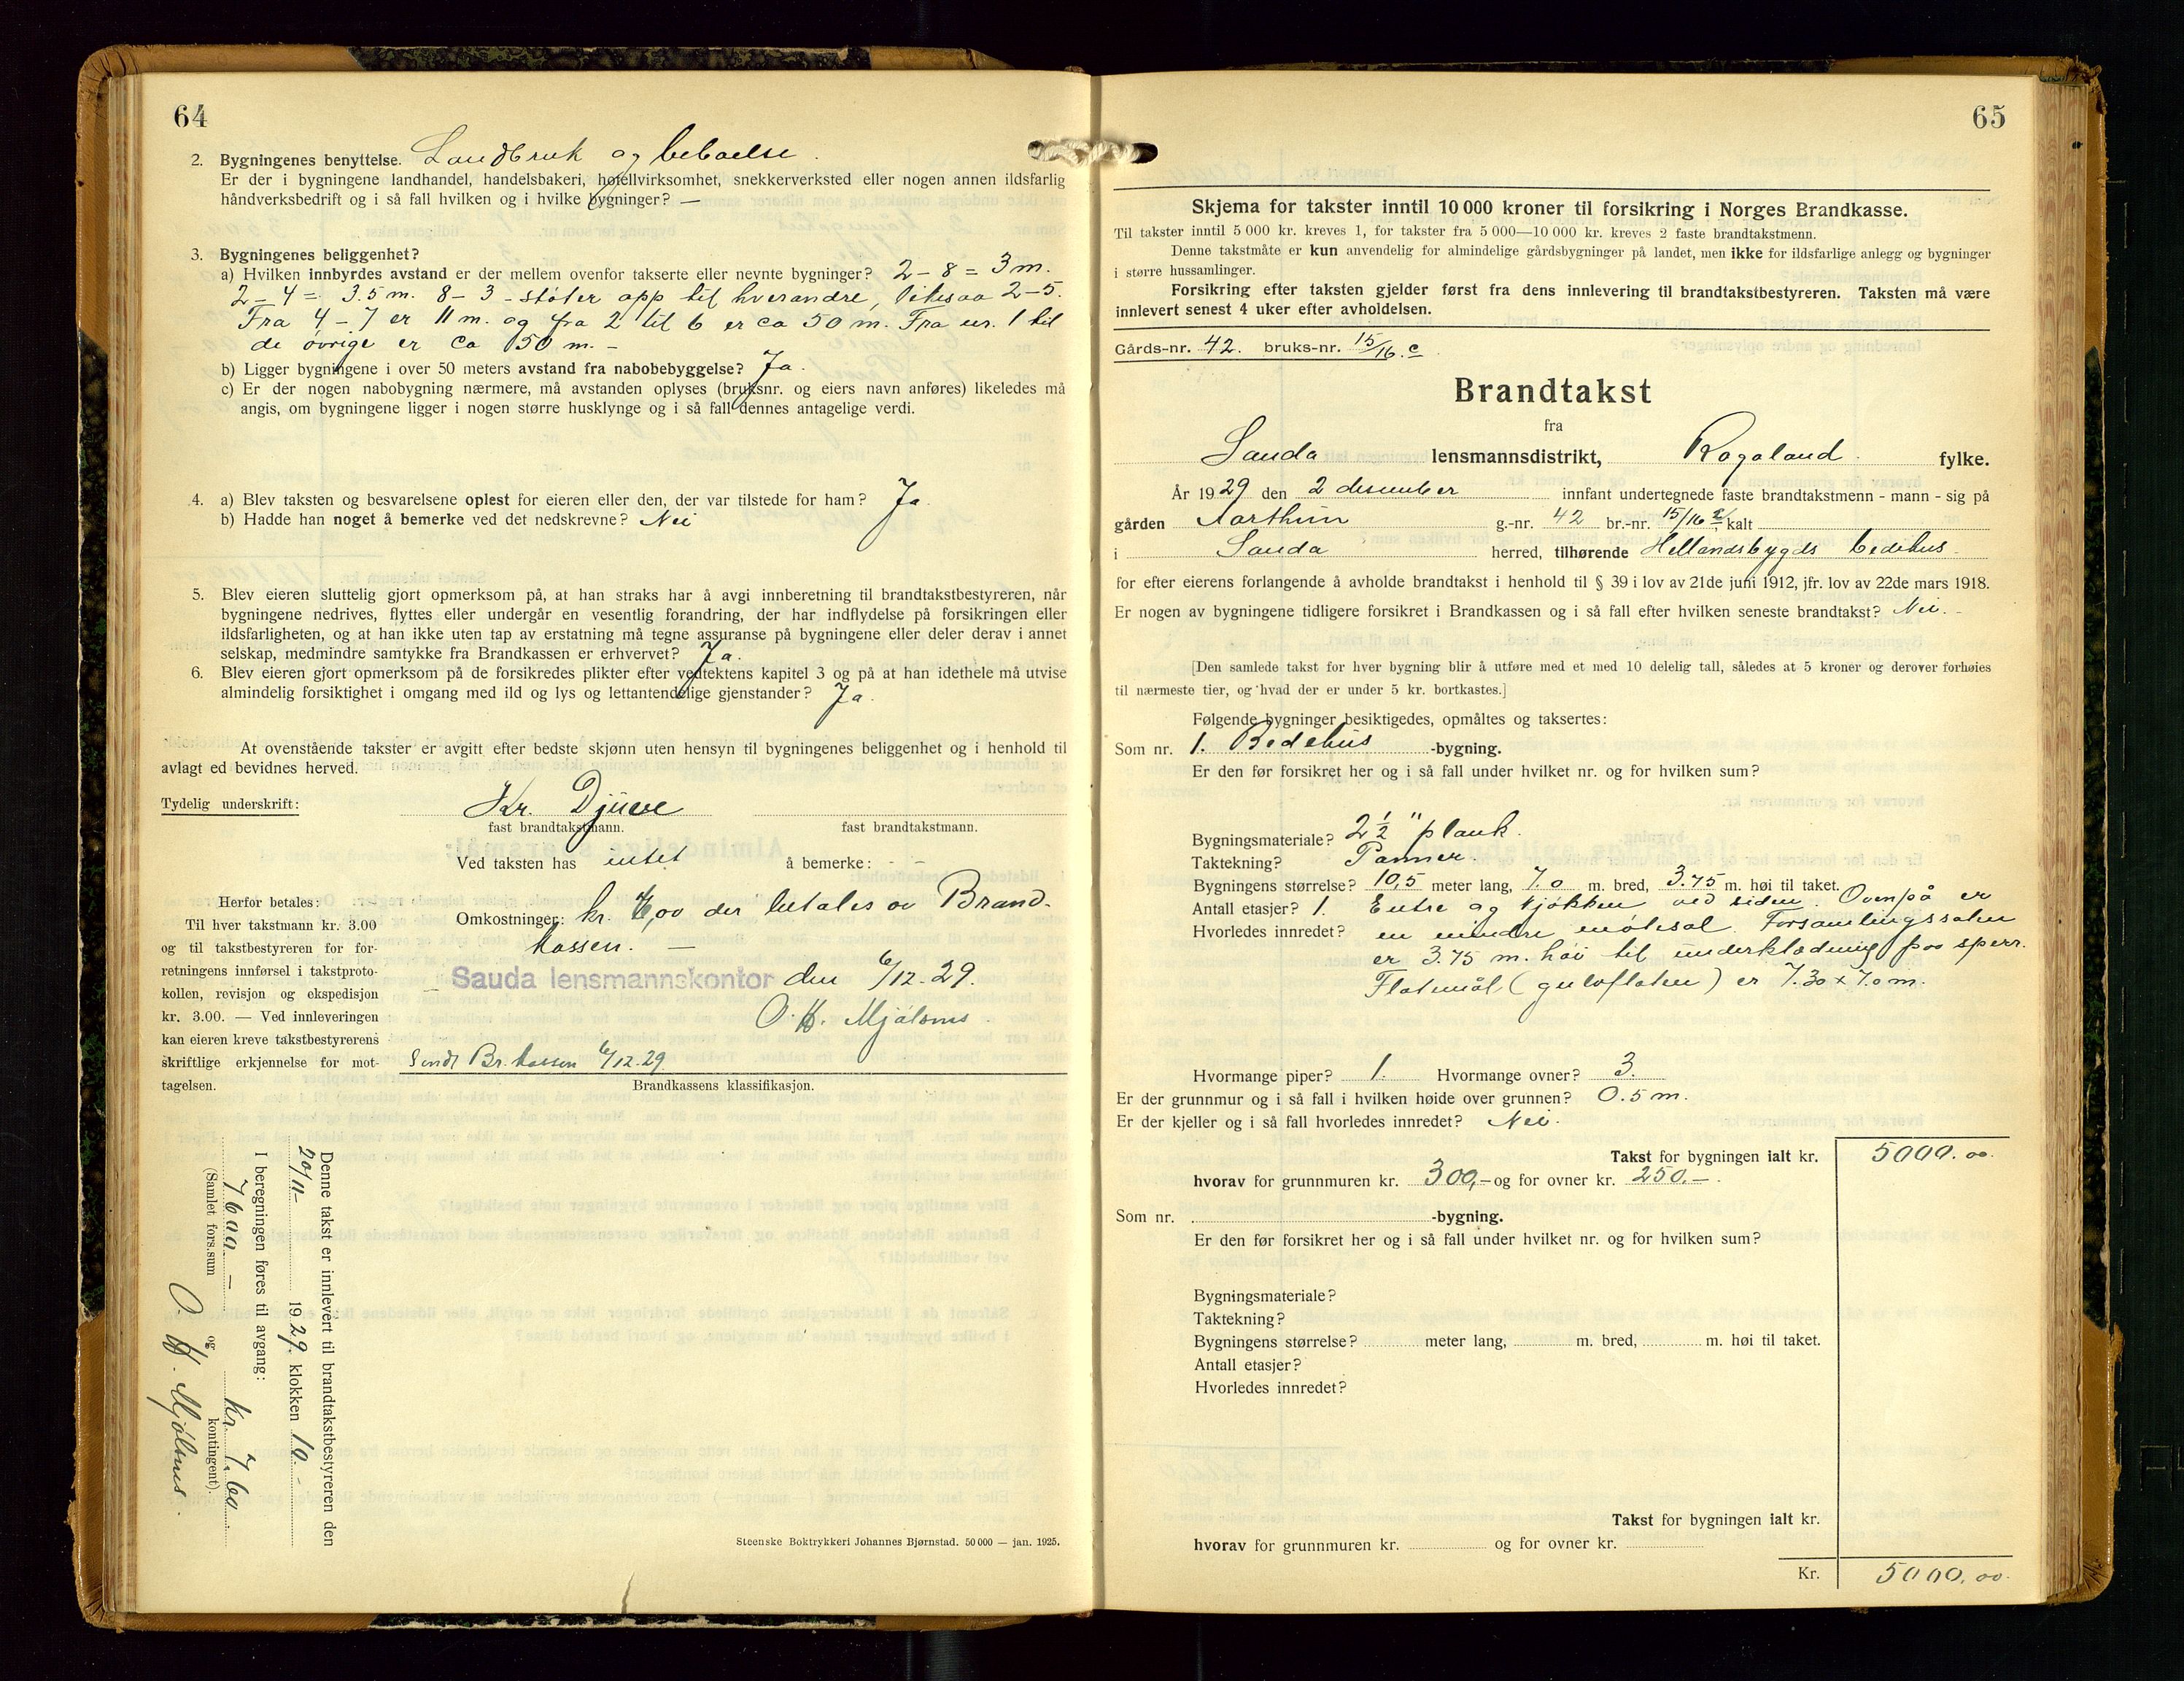 64
2. Bygningenes benyttelse. Landbruk og beboelse.
Er der i bygningene landhandel, handelsbakeri, hotellvirksomhet, snekkerverksted eller nogen annen ildsfarlig
håndverksbedrift og i så fall hvilken og i hvilke bygninger? —
3. Bygningenes beliggenhet?
a) Hvilken innbyrdes avstand er der mellem ovenfor takserte eller nevnte bygninger? 2 - 8 = 3 m.
2 - 4 = 3.5 m. 8 - 3 - støter opp til hverandre, likesaa 2-5.
Fra 4 - 7 er 11 m. og fra 2 til 6 er ca 50 m. Fra nr. 1 til
de øvrige er ca 150 m. -
b) Ligger bygningene i over 50 meters avstand fra nabobebyggelse? Ja.
c) Er der nogen nabobygning nærmere, må avstanden oplyses (bruksnr. og eiers navn anføres) likeledes må
angis, om bygningene ligger i nogen større husklynge og i så fall dennes antagelige verdi.
4. a) Blev taksten og besvarelsene oplest for eieren eller den, der var tilstede for ham? Ja.
b) Hadde han noget å bemerke ved det nedskrevne? Nei
5. Blev eieren sluttelig gjort opmerksom på, at han straks har å avgi innberetning til brandtakstbestyreren, når
bygningene nedrives, flyttes eller undergår en vesentlig forandring, der har indflydelse på forsikringen eller
ildsfarligheten, og at han ikke uten tap av erstatning må tegne assuranse på bygningene eller deler derav i annet
selskap, medmindre samtykke fra Brandkassen er erhvervet? Ja.
6. Blev eieren gjort opmerksom på de forsikredes plikter efter vedtektens kapitel 3 og på at han idethele må utvise
almindelig forsiktighet i omgang med ild og lys og lettantendelige gjenstander? Ja.
At ovenstående takster er avgitt efter bedste skjønn uten hensyn til bygningenes beliggenhet og i henhold til
avlagt ed bevidnes herved.
Tydelig underskrift: Kr. Djuve
fast brandtakstmann. fast brandtakstmann.
Ved taksten has intet å bemerke: - -
Omkostninger: kr. 6,00 der betales av Brand-
kassen. —
Sauda lensmannskontor den 6/12. 29.
O. H. Mjølsnes.
Sendt Br. kassen 6/12.29
Brandkassens klassifikasjon.
Herfor betales:
Til hver takstmann kr. 3.00
og til takstbestyreren for for-
retningens innførsel i takstproto-
kollen, revisjon og ekspedisjon
kr. 3.00. — Ved innleveringen
kan eieren kreve takstbestyrerens
skriftlige erkjennelse for mot-
tagelsen.
Denne takst er innlevert til brandtakstbestyreren den
20/11- 1929. klokken 10. -
I beregningen føres til avgang:
7600 — kr. 7,60
(Samlet fors.sum og kontingent).
O. H. Mjølsnes.
Steenske Boktrykkeri Johannes Bjørnstad. 50 000 — jan. 1925.
65
Skjema for takster inntil 10 000 kroner til forsikring i Norges Brandkasse.
Til takster inntil 5 000 kr. kreves 1, for takster fra 5 000—10 000 kr. kreves 2 faste brandtakstmenn.
Denne takstmåte er kun anvendelig for almindelige gårdsbygninger på landet, men ikke for ildsfarlige anlegg og bygninger
i større hussamlinger.
Forsikring efter taksten gjelder først fra dens innlevering til brandtakstbestyreren. Taksten må være
innlevert senest 4 uker efter avholdelsen.
Gårds-nr. 42. bruks-nr. 15/16. c
Brandtakst
fra
Sauda lensmannsdistrikt, Rogaland. fylke.
År 1929 den 2 desember innfant undertegnede faste brandtakstmenn - mann - sig på
gården Aarthun g.-nr. 42 br.-nr. 15/16 c, kalt
i Sauda herred, tilhørende Hellandsbygds bedehus
for efter eierens forlangende å avholde brandtakst i henhold til § 39 i lov av 21de juni 1912, jfr. lov av 22de mars 1918.
Er nogen av bygningene tidligere forsikret i Brandkassen og i så fall efter hvilken seneste brandtakst? Nei. -
[Den samlede takst for hver bygning blir å utføre med et med 10 delelig tall, således at 5 kroner og derover forhøies
til nærmeste tier, og hvad der er under 5 kr. bortkastes.]
Følgende bygninger besiktigedes, opmåltes og taksertes:
Som nr. 1. Bedehus -bygning.
Er den før forsikret her og i så fall under hvilket nr. og for hvilken sum?
Bygningsmateriale? 2 1/2" plank.
Taktekning? Panner
Bygningens størrelse? 10,5 meter lang, 7.0 m. bred, 3.75 m. høi til taket.
Antall etasjer? 1. Entre og kjøkken ved siden. Ovenpå er
Hvorledes innredet? en mindre møtesal. Forsamlingssalen
er 3.75 m. høi til underklædning paa sperr.
Flatemål (gulvflaten) er 7.30 x 7.0 m.
Hvormange piper? 1. Hvormange ovner? 3.
Er der grunnmur og i så fall i hvilken høide over grunnen? 0.5 m.
Er der kjeller og i så fall hvorledes innredet? Nei.
Takst for bygningen ialt kr. 5000.00.
hvorav for grunnmuren kr. 300,- og for ovner kr. 250.—.
Som nr. -bygning.
Er den før forsikret her og i så fall under hvilket nr. og for hvilken sum?
Bygningsmateriale?
Taktekning?
Bygningens størrelse? meter lang, m. bred, m. høi til taket.
Antall etasjer?
Hvorledes innredet?
Takst for bygningen ialt kr.
hvorav for grunnmuren kr. og for ovner kr.
Kr. 5000.00.